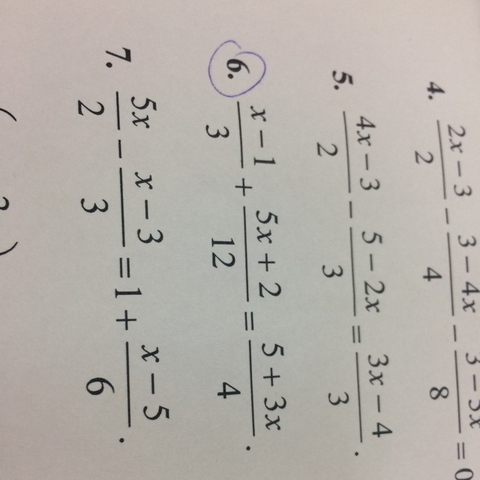 4. (2x − 3)/2 − (3 − 4x)/4 − (3 − 5x)/8 = 0
5. (4x − 3)/2 − (5 − 2x)/3 = (3x − 4)/3.
6. (x − 1)/3 + (5x + 2)/12 = (5 + 3x)/4.
7. 5x/2 − (x − 3)/3 = 1 + (x − 5)/6.